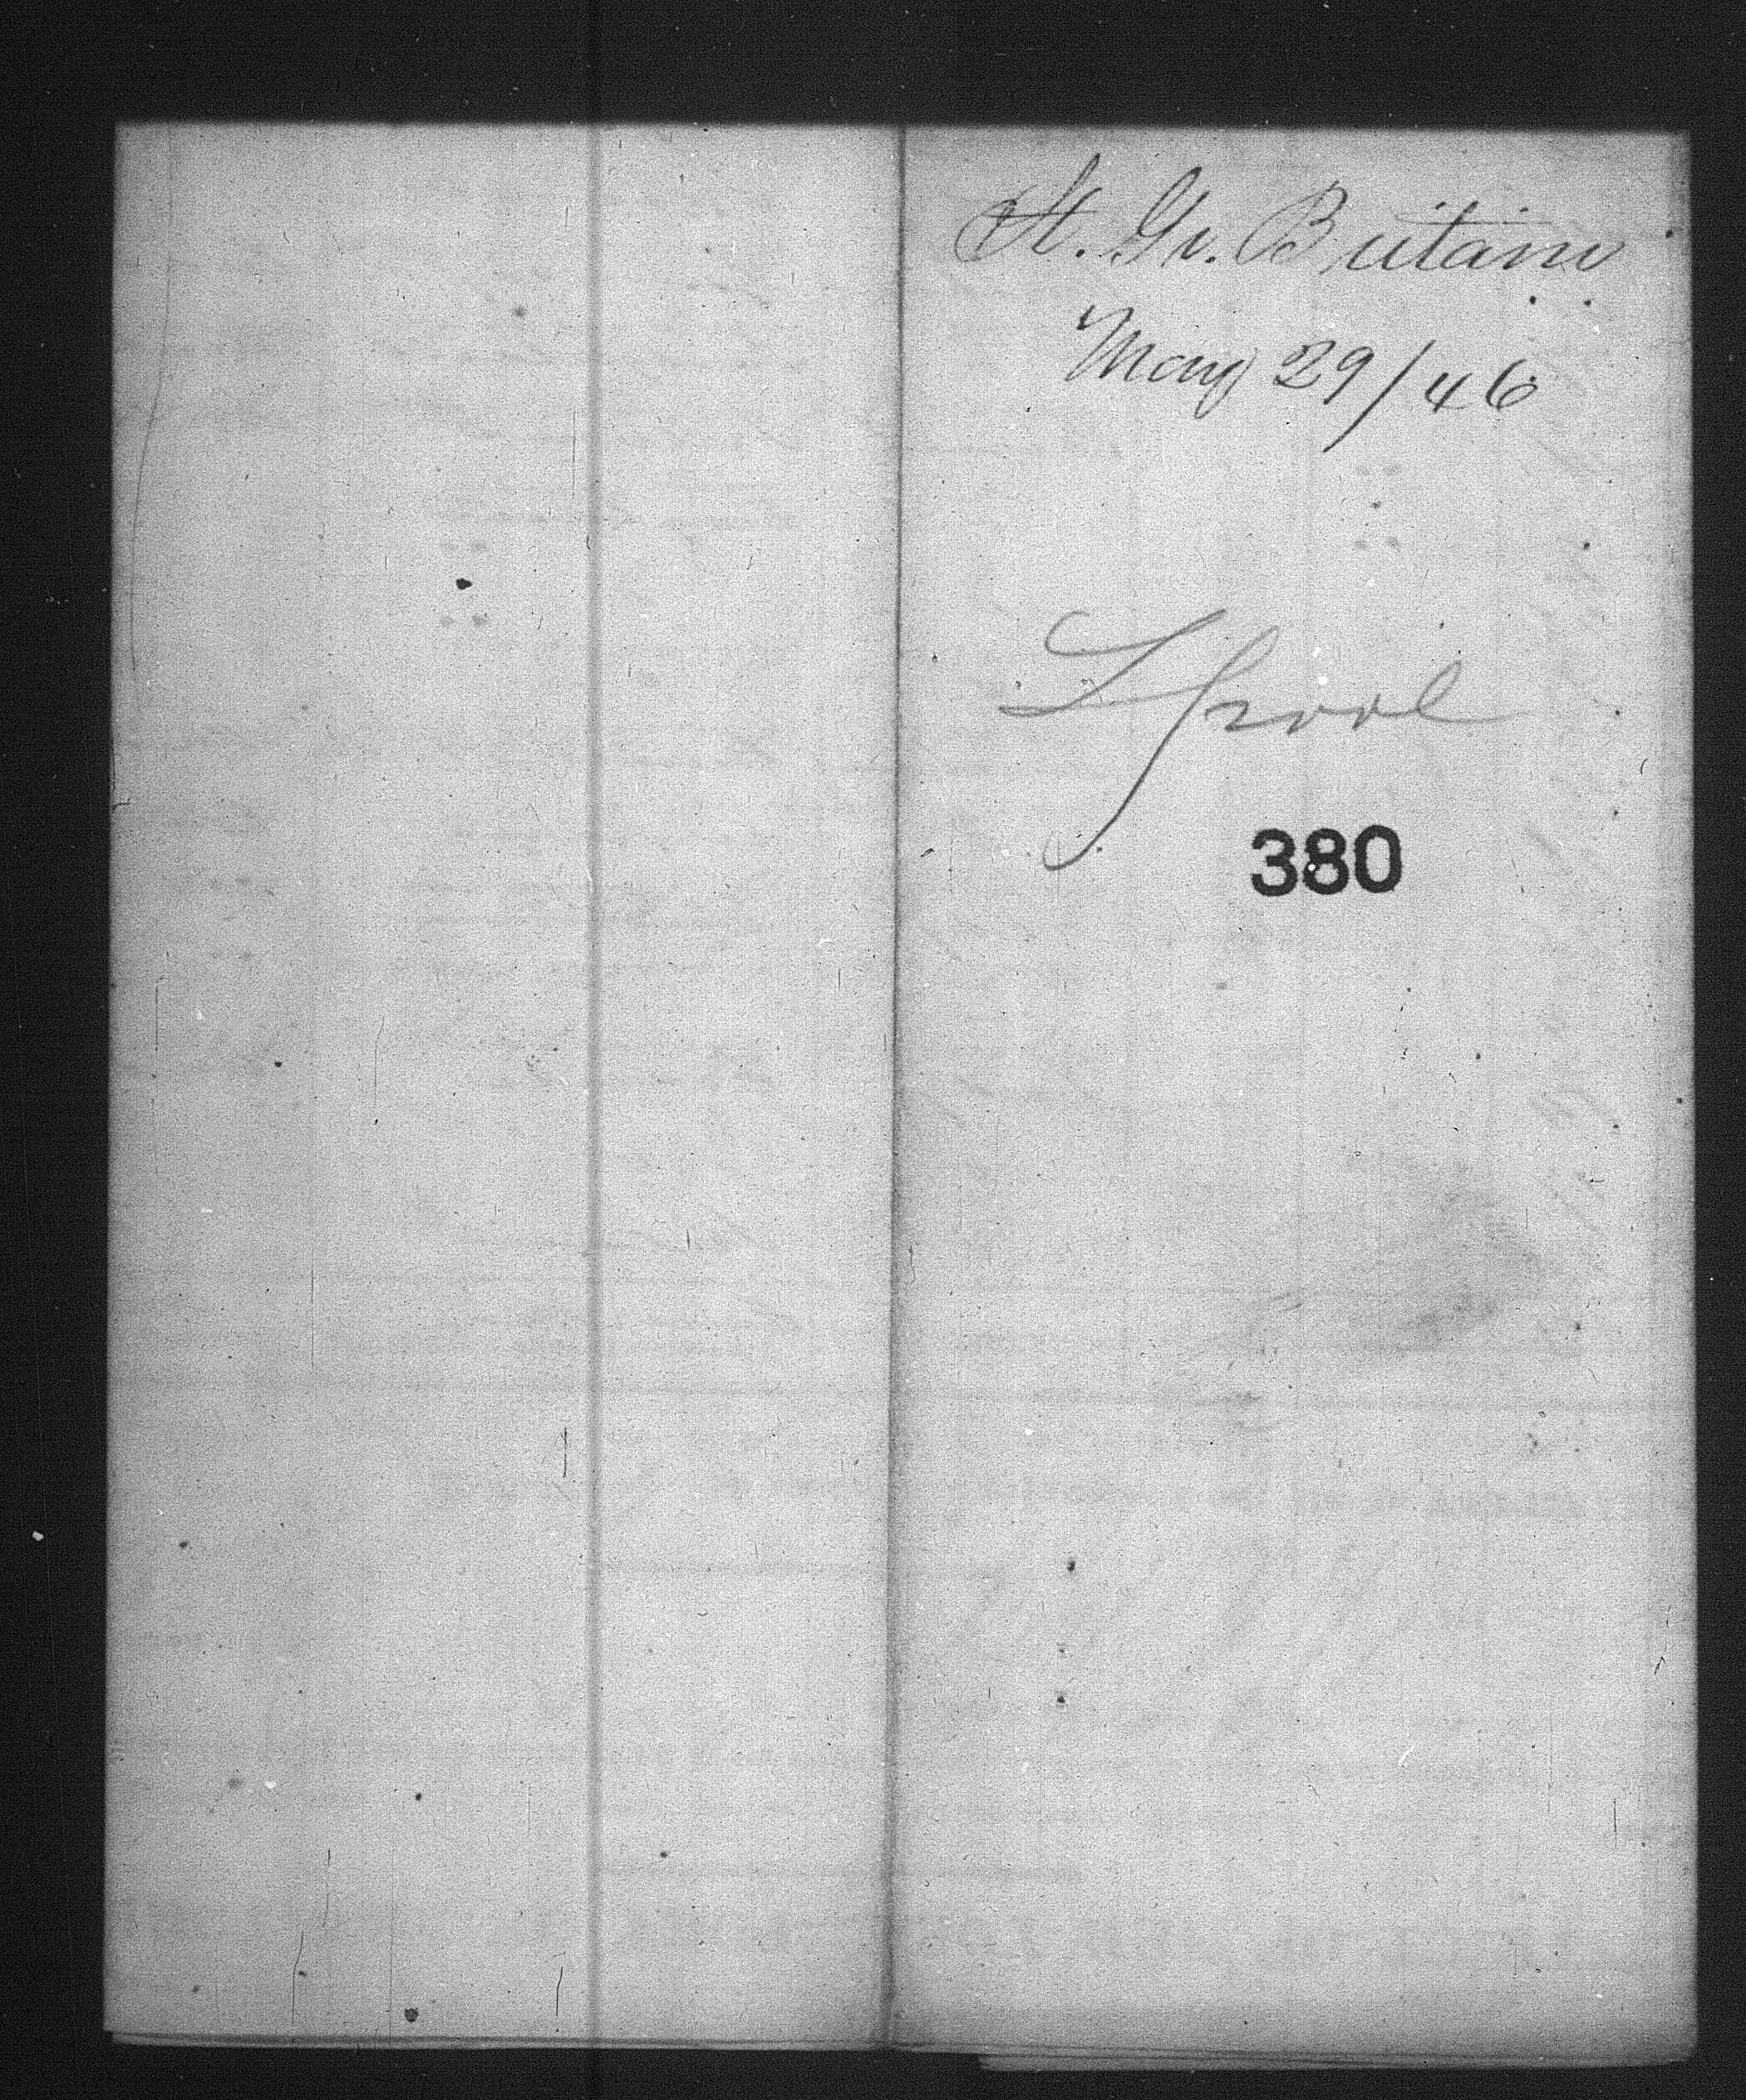 St. Gr. Britain
May 29/46
Lpool
380